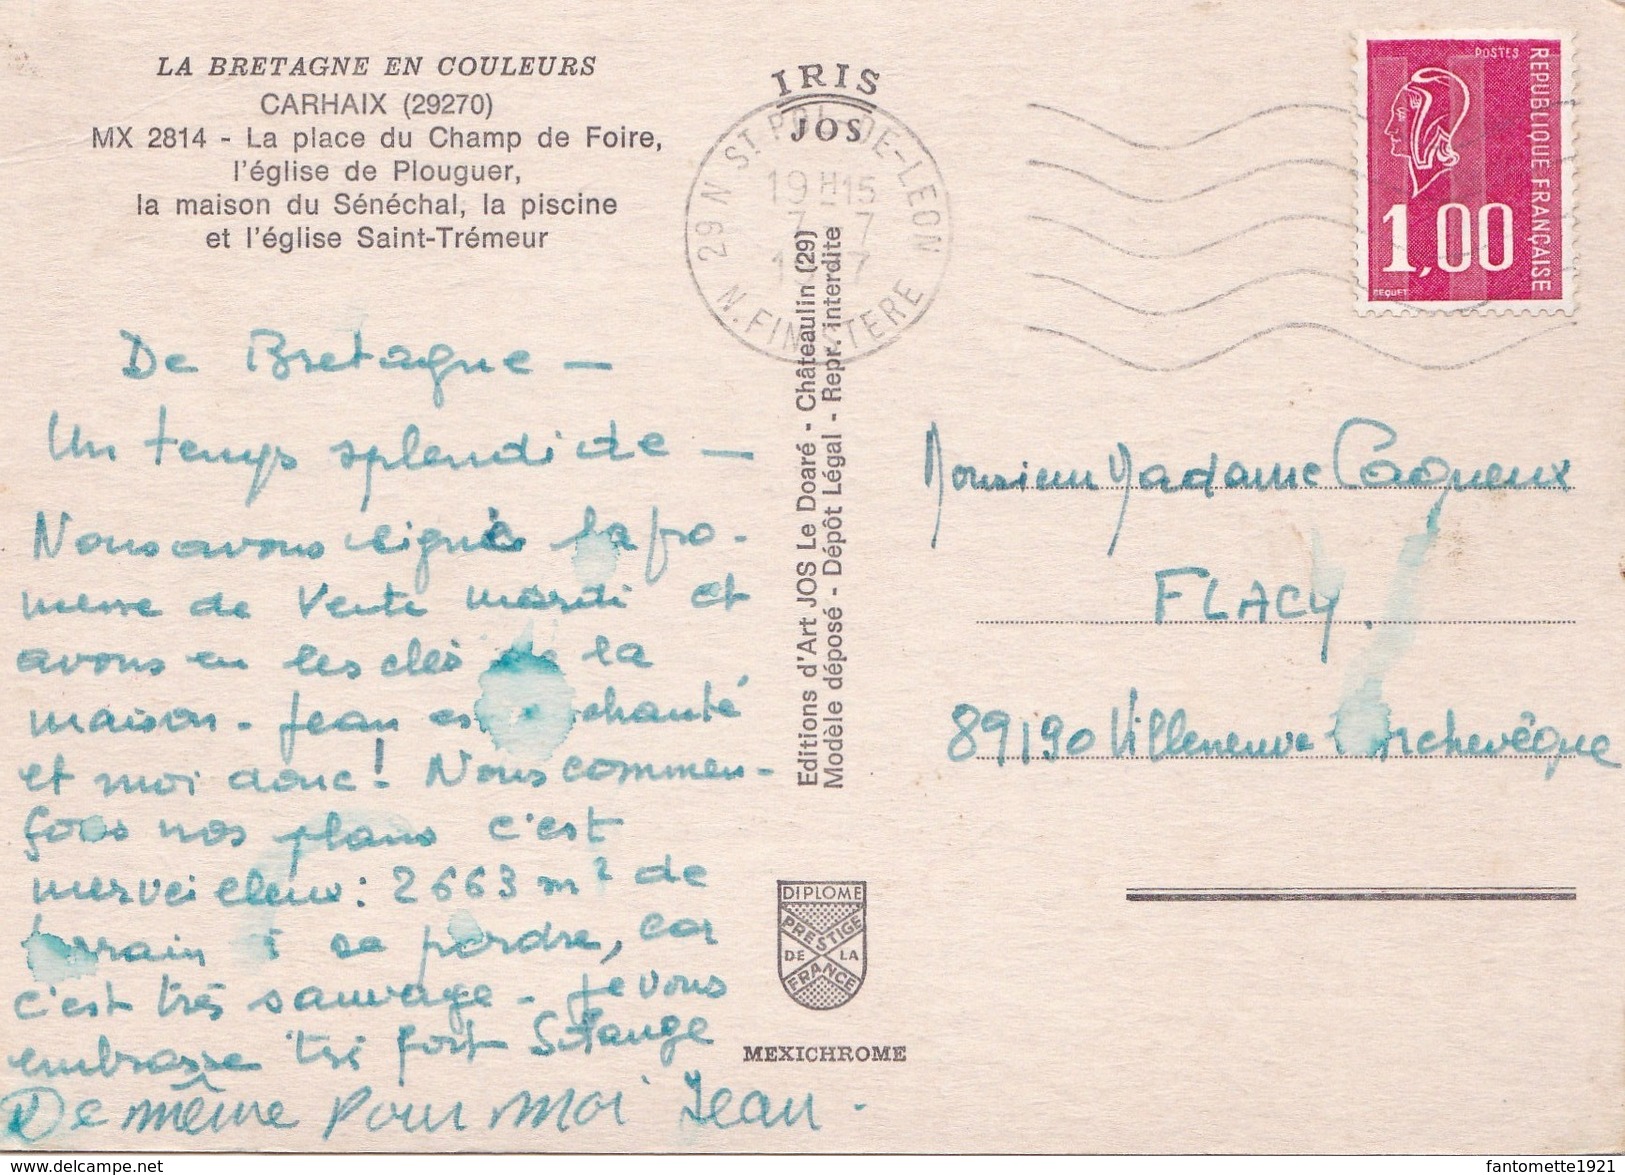 LA BRETAGNE EN COULEURS
CARHAIX (29270)
MX 2814 - La place du Champ de Foire,
l'église de Plouguer,
la maison du Sénéchal, la piscine
et l'église Saint-Trémeur
IRIS
JOS
29 N ST POL-DE-LEON
19H15
7 7
N. FINISTERE
POSTES
REPUBLIQUE FRANÇAISE
1,00
BEQUET
De Bretagne —
Un temps splendide —
Nous avons signé la pro-
messe de Vente mardi et
avons eu les clés de la
maison. Jean est enchanté
et moi donc! Nous commen-
çons nos plans c'est
merveilleux : 2663 m² de
terrain à se perdre, car
c'est très sauvage - Je vous
embrasse très fort Solange
De même pour moi Jean.
Editions d'Art JOS Le Doaré - Châteaulin (29)
Modèle déposé - Dépôt Légal - Repr. interdite
DIPLOME
PRESTIGE
DE LA
FRANCE
MEXICHROME
Monsieur Madame Cagneux
FLACY.
89190 Villeneuve l'Archevêque
www.delcampe.net
fantomette1921